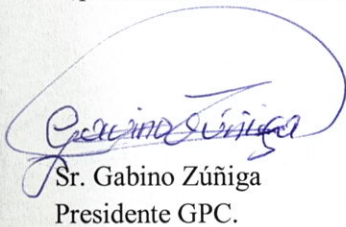 Gabino Zúñiga
Sr. Gabino Zúñiga
Presidente GPC.